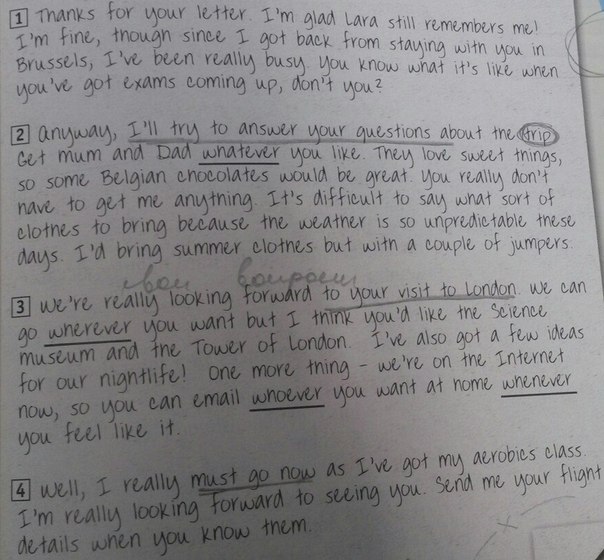 1 Thanks for your letter. I'm glad Lara still remembers me!
I'm fine, though since I got back from staying with you in
Brussels, I've been really busy. You know what it's like when
you've got exams coming up, don't you?
2 Anyway, I'll try to answer your questions about the trip.
Get mum and Dad whatever you like. They love sweet things,
so some Belgian chocolates would be great. You really don't
have to get me anything. It's difficult to say what sort of
clothes to bring because the weather is so unpredictable these
days. I'd bring summer clothes but with a couple of jumpers.
свои вопросы
3 We're really looking forward to your visit to London. We can
go wherever you want but I think you'd like the Science
museum and the Tower of London. I've also got a few ideas
for our nightlife! One more thing – we're on the Internet
now, so you can email whoever you want at home whenever
you feel like it.
4 Well, I really must go now as I've got my aerobics class.
I'm really looking forward to seeing you. Send me your flight
details when you know them.